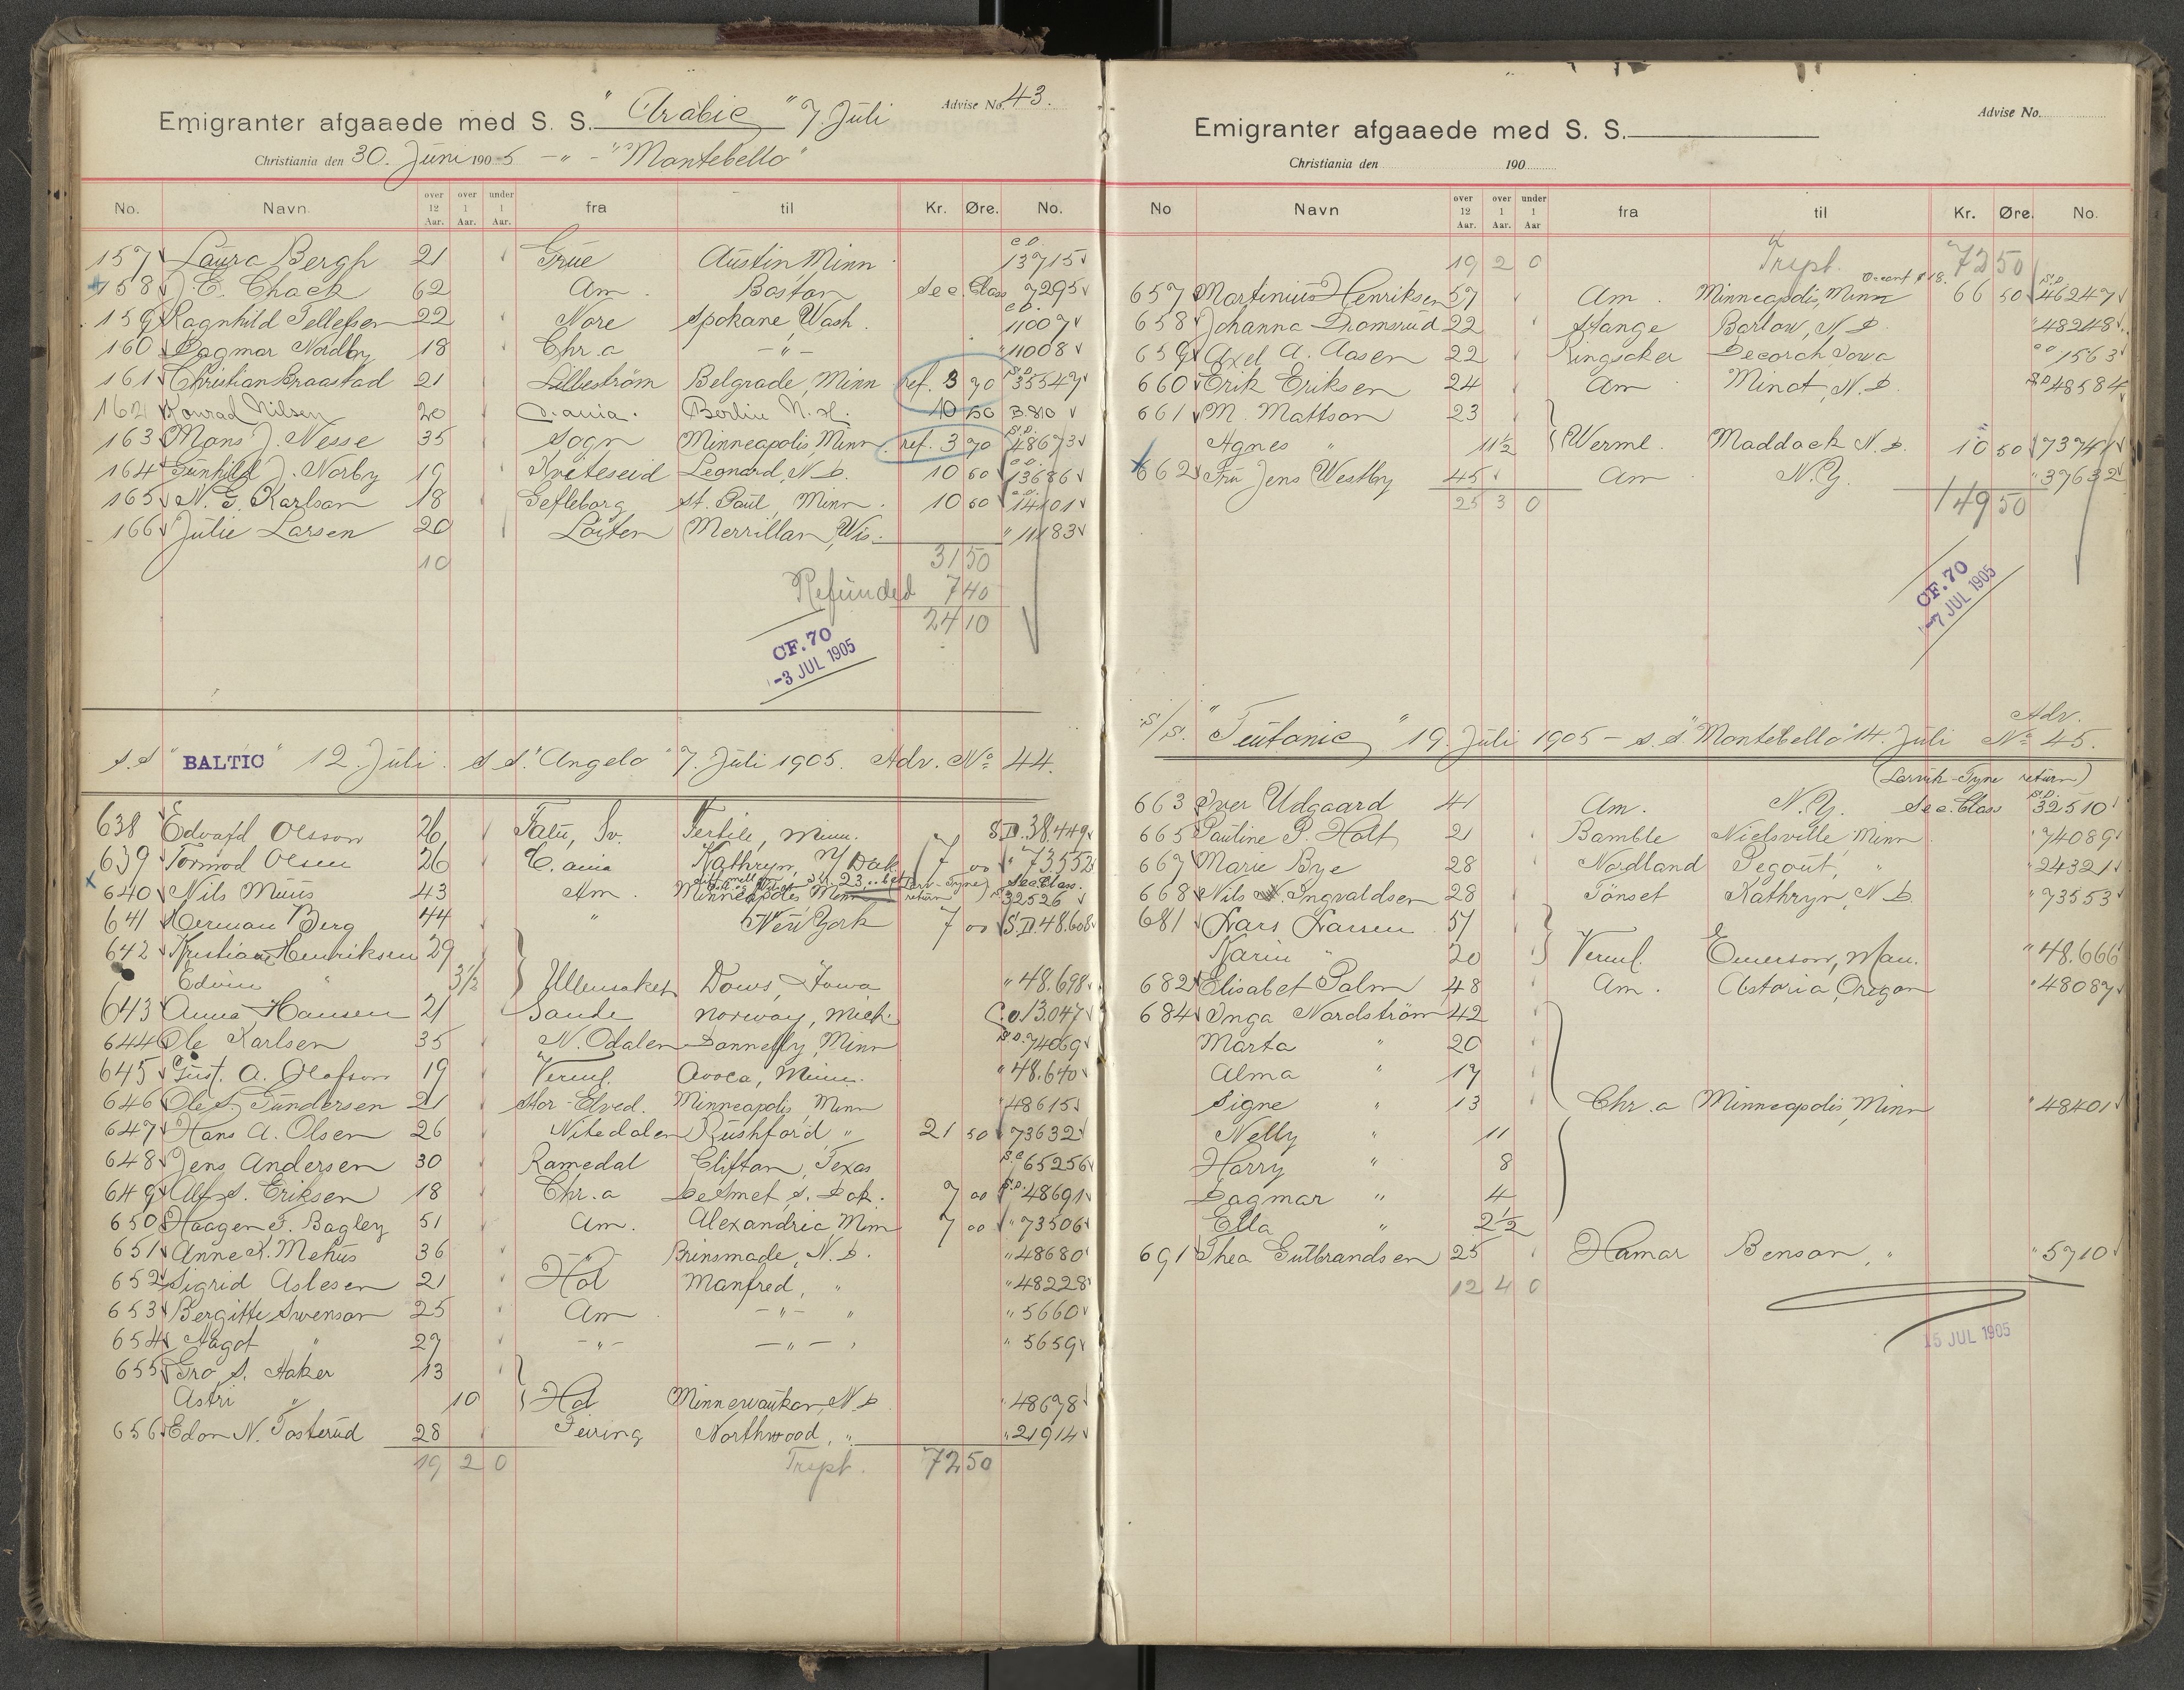 Emigranter afgaaede med S. S. "Arabic" 7. Juli Advise No. 43.
Christiania den 30. Juni 1905 -"- "Montebello"
No. Navn. over 12 Aar. over 1 Aar. under 1 Aar. fra til Kr. Øre. No.
157 Laura Bergh 21 Grue Austin Minn c.o. 13715
158 J. E. Chack 62 Am. Boston Sec. Class 7295
159 Ragnhild Tellefsen 22 Nore Spokane Wash. c.o. 11007
160 Dagmar Nordby 18 Chr.a -"- " 11008
161 Christian Braastad 21 Lilleström Belgrade, Minn ref. 3 70 S.D. 35547
162 Konrad Nilsen 20 C.ania. Berlin N.H. 10 50 B.810
163 Mons J. Nesse 35 Sogn Minneapolis, Minn. ref. 3 70 S.D. 48673
164 Gunhild J. Norby 19 Kviteseid Leonard, N.D. 10 50 c.o. 13686
165 N. G. Karlson 18 Gefleborg St. Paul, Minn. 10 50 c.o. 14101
166 Julie Larsen 20 Löiten Merrillan, Wis. " 11183
10 31 50
Refunded 7 40
24 10
CF. 70
-3 JUL 1905
S.S "BALTIC" 12. Juli. S.S. "Angelo" 7. Juli 1905. Adv. No 44.
638 Edvard Olsson 26 Fatu, Sv. Fertile, Minn. S.D. 38.449
639 Tormod Olsen 26 C.ania Kathryn, N/Dak 7 00 " 73552
640 Nils Muus 43 Am. Minneapolis Minn (Larv-Tyne return) Sec Class. 32526
641 Herman Berg 44 " New York 7 00 S.D. 48.608
642 Kristian Henriksen 29
Edvin " 3½ Ullensaker Dows, Iowa " 48.698
643 Anna Hansen 21 Sande Norway, Mich. C.o 13.047
644 Ole Karlsen 35 N. Odalen Donnelly, Minn S.D. 74069
645 Gust. A. Olafson 19 Verml. Avoca, Minn. " 48.640
646 Ole S. Gundersen 21 Stor-Elved. Minneapolis, Minn " 48615
647 Hans A. Olsen 26 Nitedalen Rushford, " 21 50 " 73632
648 Jens Andersen 30 Ramedal Clifton, Texas S.C. 65256
649 Alf S. Eriksen 18 Chr.a DeSmet S. Dak. 7 00 S.D. 48691
650 Haagen T. Bagley 51 Am. Alexandria Minn 7 00 " 73506
651 Anne K. Mehus 36 -"- Brinsmade, N.D. " 48680
652 Sigrid Aslesen 21 Hol Manfred, " " 48228
653 Bergitte Swenson 25 Am -"- " " 5660
654 Aagot " 27 -"- -"- " 5659
655 Gro S. Haker 13
Astri " 10 Hol Minnewaukan, N.D. " 48678
656 Edon N. Tosterud 28 Feiring Northwood, " " 21914
19 2 0 Trspt. 72 50
Emigranter afgaaede med S. S. Advise No.
Christiania den 190
No Navn over 12 Aar. over 1 Aar. under 1 Aar fra til Kr. Øre. No.
19 2 0 Trspt. 72 50
657 Martinius Henriksen 57 Am. Minneapolis, Minn 66 50 S.D. 46247
658 Johanna Dromsrud 22 Stange Barlow, N.D. " 48248
659 Axel A. Aasen 22 Ringsaker Decorah Iowa c.o 1563
660 Erik Eriksen 24 Am Minot, N.D. S.D 48584
661 M. Mattson 23
Agnes " 11½ Werml. Maddock N.D. 10 50 " 73741
662 Fru Jens Westby 45 Am N.Y. " 37632
25 3 0 149 50
CF. 70
-7 JUL 1905
S/S. "Teutonic" 19. Juli 1905 - S.S. "Montebello" 14. Juli Adv. No 45.
(Larvik-Tyne return)
663 Iver Udgaard 41 Am. N.Y. Sec. Class S.D. 32510
665 Pauline P. Holt 21 Bamble Nielsville Minn " 74089
667 Marie Bye 28 Nordland Pegout, " " 24321
668 Nils N. Ingvaldsen 28 Tönset Kathryn, N.D. " 73553
681 Lars Larsen 51
Karin " 20 Verml. Emerson, Man. " 48.666
682 Elisabet Palm 48 Am. Astoria, Oregon " 48087
684 Inga Nordström 42
Marta " 20
Alma " 17
Signe " 13 Chr.a Minneapolis, Minn " 48401
Nelly " 11
Harry " 8
Dagmar " 4
Ella " 2½
691 Thea Gutbrandsen 25 Hamar Benson, " " 5710
12 4 0
15 JUL 1905